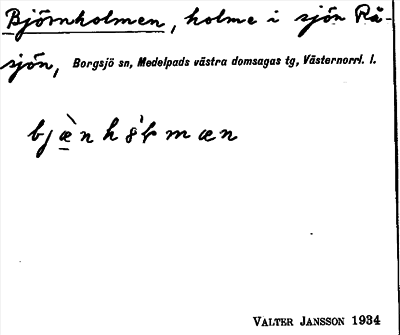 Björnholmen, holme i sjön Rå-
sjön, Borgsjö sn, Medelpads västra domsagas tg, Västernorrl. l.
VALTER JANSSON 1934